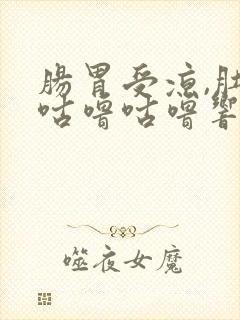 腸胃受涼,肚
咕噜咕噜響
噬夜女魔